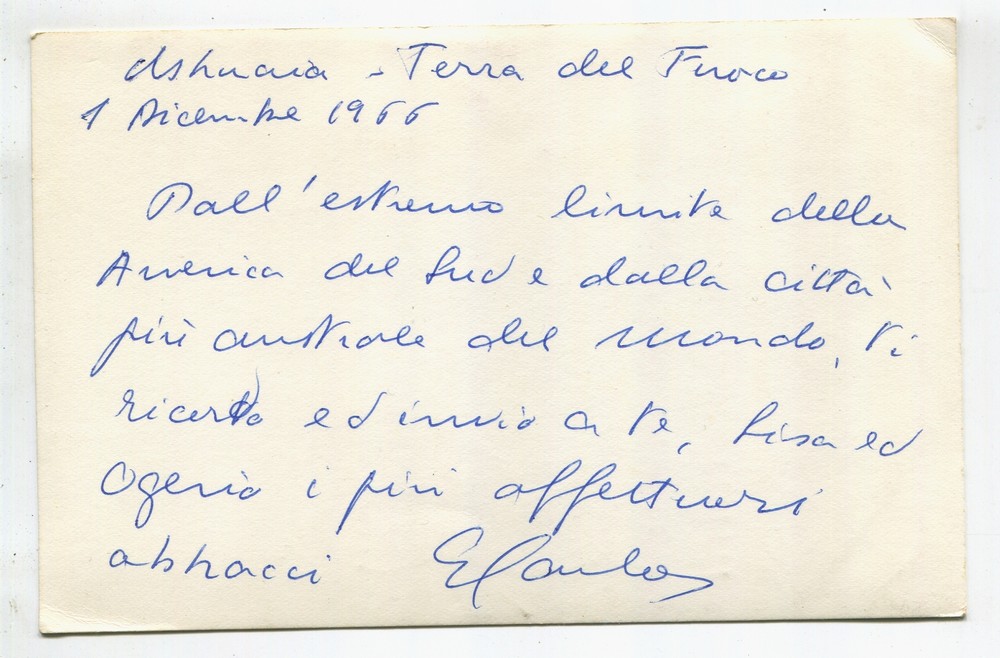 Ushuaia - Terra del Fuoco
1 Dicembre 1966
Dall'estremo limite della
America del Sud e dalla città
più australe del mondo, ti
ricordo ed invio a te, Lisa ed
i più affettuosi
abbracci